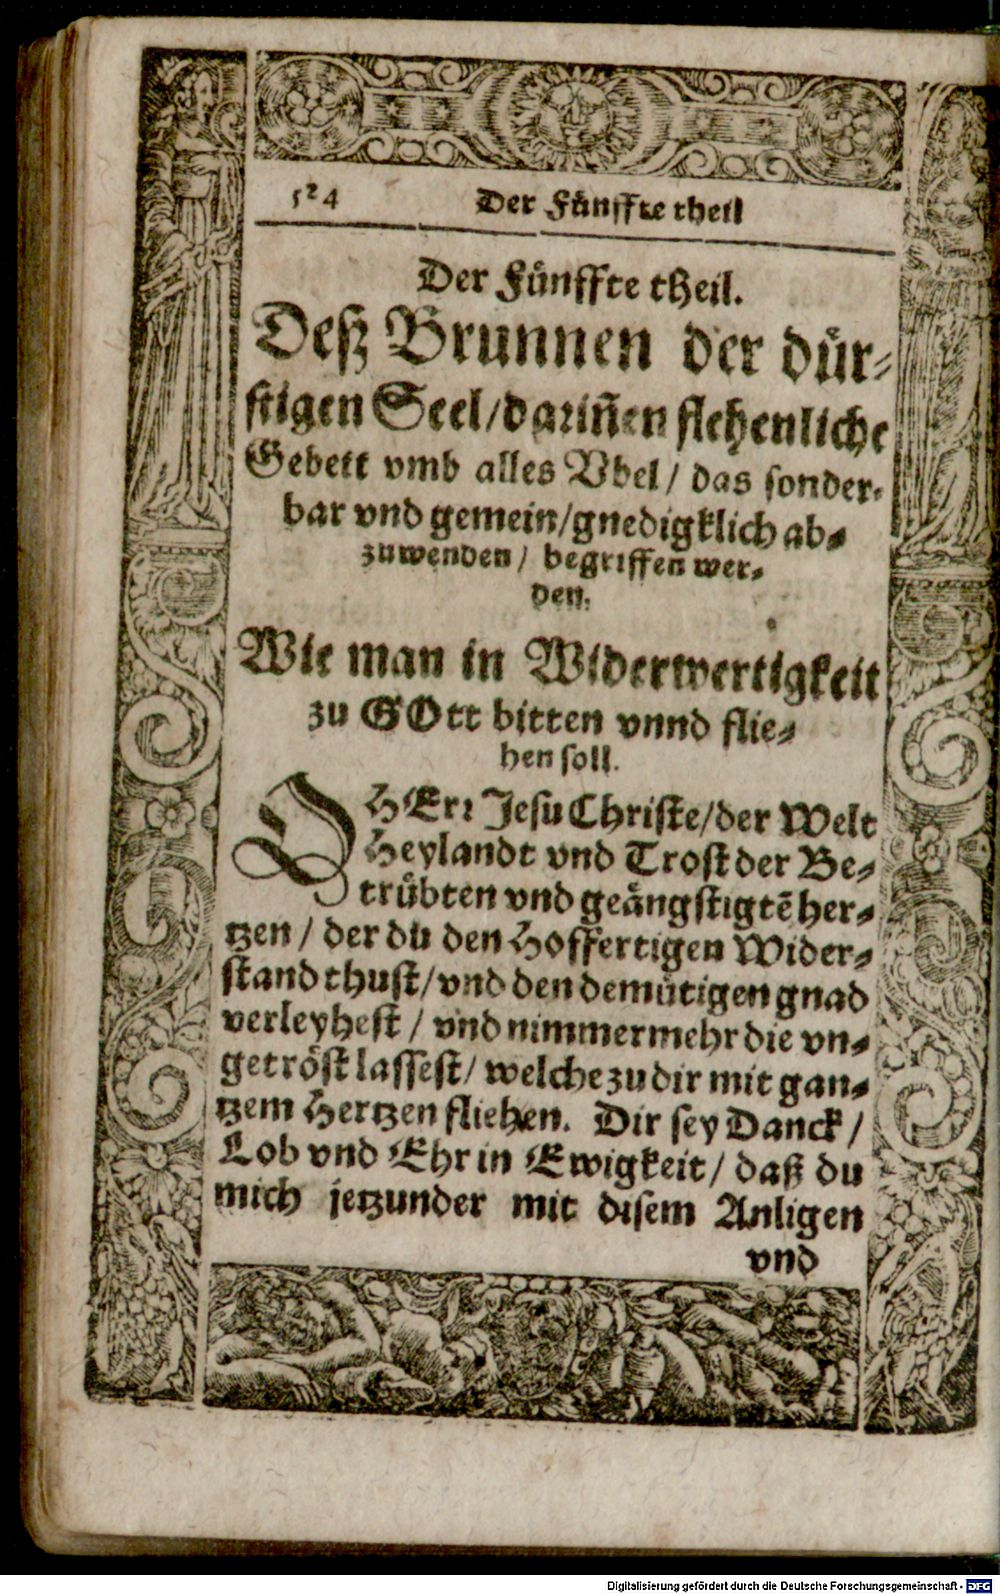 524 Der Fůnffte theil
Der Fůnffte theil.
Deß Brunnen der důr-
stigen Seel/dariñen flehenliche
Gebett vmb alles Vbel/ das sonder-
bar vnd gemein/gnedigklich ab-
zuwenden/ begriffen wer-
den.
Wie man in Widerwertigkeit
zu GOtt bitten vnnd flie-
hen soll.
O HErr Jesu Christe/der Welt
Heylandt vnd Trost der Be-
trůbten vnd geängstigtẽ her-
tzen/ der du den Hoffertigen Wider-
stand thust/vnd den demůtigen gnad
verleyhest/ vnd nimmermehr die vn-
getröst lassest/ welche zu dir mit gan-
tzem Hertzen fliehen. Dir sey Danck/
Lob vnd Ehr in Ewigkeit/ daß du
mich jetzunder mit disem Anligen
vnd
Digitalisierung gefördert durch die Deutsche Forschungsgemeinschaft - DFG